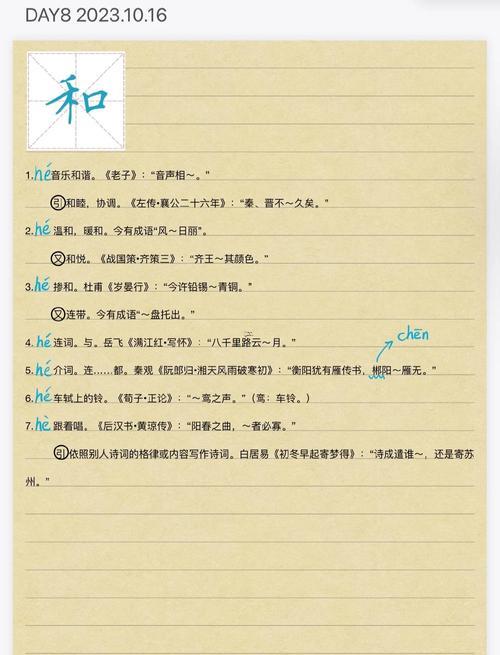 DAY8 2023.10.16
和
1.hé音乐和谐。《老子》：“音声相～。”
引和睦，协调。《左传•襄公二十六年》：“秦、晋不～久矣。”
2.hé 温和，暖和。今有成语“风～日丽”。
又和悦。《战国策•齐策三》：“齐王～其颜色。”
3.hé 掺和。杜甫《岁晏行》：“今许铅锡～青铜。”
又连带。今有成语“～盘托出。”
chēn
4.hé 连词。与。岳飞《满江红•写怀》：“八千里路云～月。”
5.hé 介词。连……都。秦观《阮郎归•湘天风雨破寒初》：“衡阳犹有雁传书，郴阳～雁无。”
6.hé 车轼上的铃。《荀子•正论》：“～鸾之声。”（鸾：车铃。）
7.hè 跟着唱。《后汉书•黄琼传》：“阳春之曲，～者必寡。”
引依照别人诗词的格律或内容写作诗词。白居易《初冬早起寄梦得》：“诗成遣谁～，还是寄苏
州。”